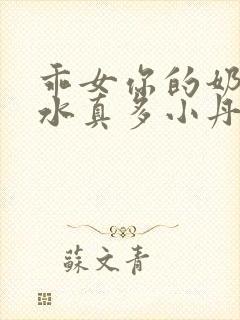 乖女你的奶
水真多小丹
蘇文青